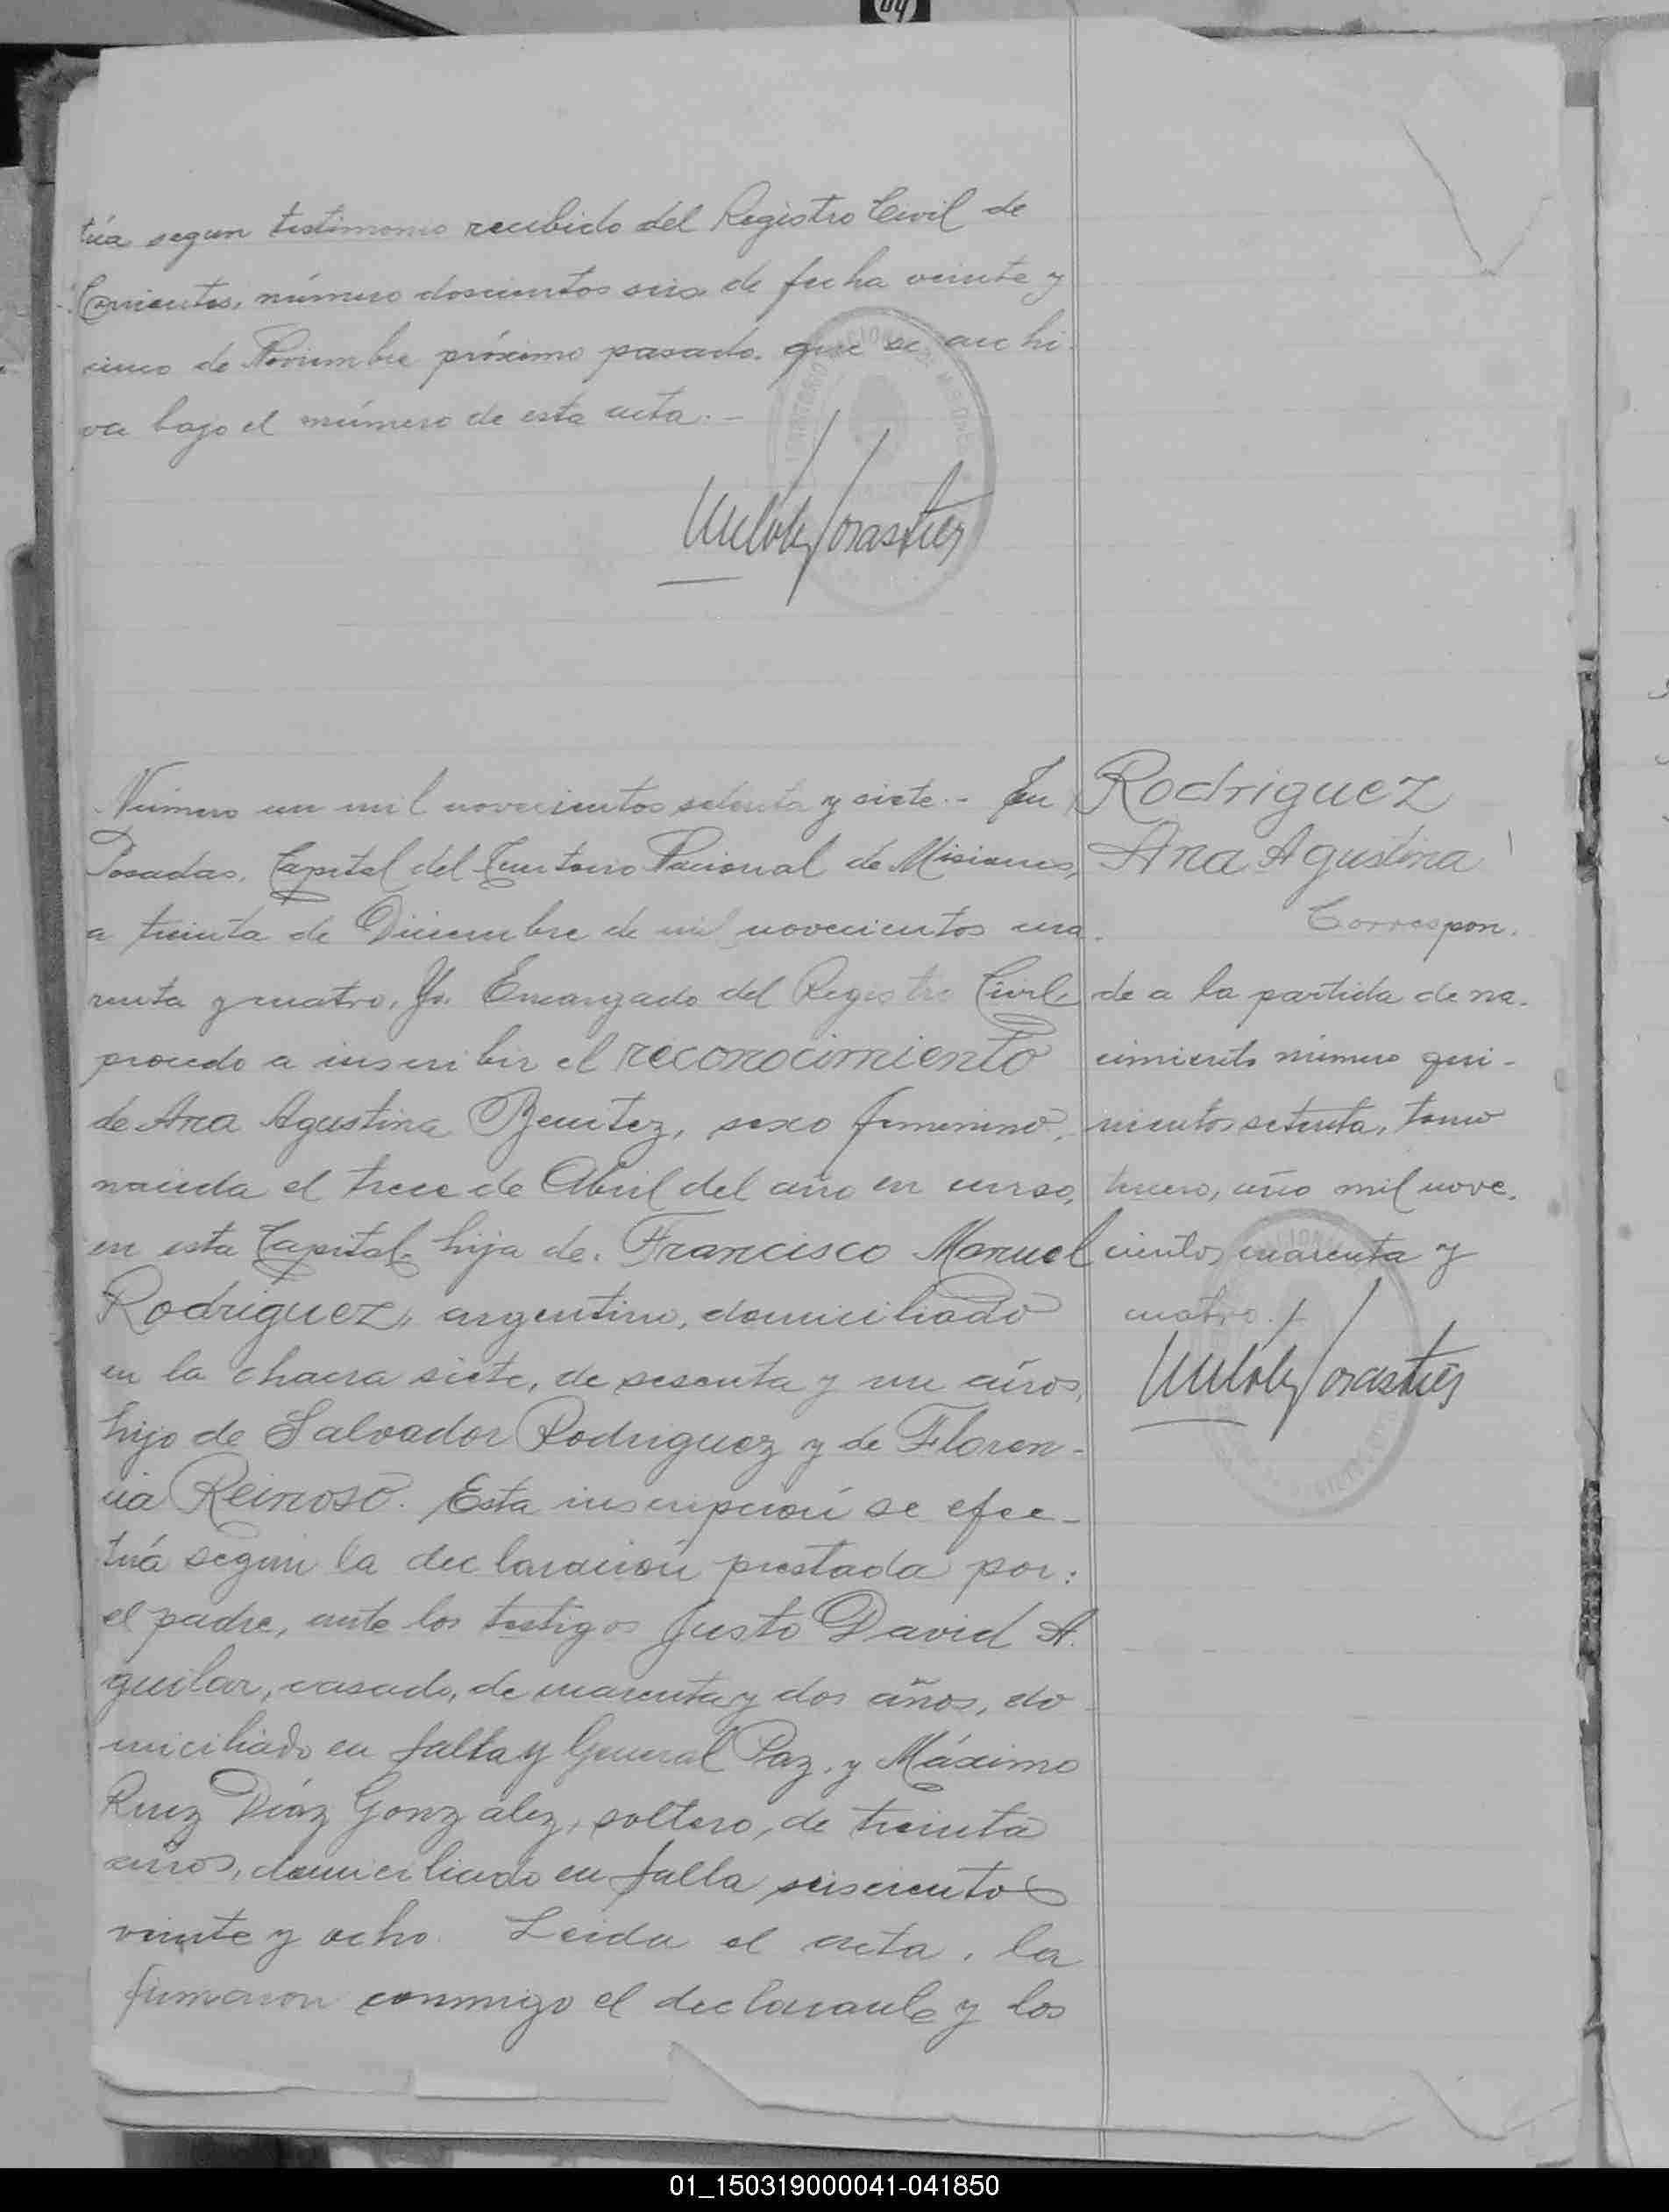 túa segun testimonio recibido del Registro Civil de
Corrientes, número doscientos seis de fecha veinte y
cinco de Noviembre próximo pasado, que se archi-
va bajo el número de esta acta.-
Número un mil novecientos setenta y siete.- En
Posadas, Capital del Territorio Nacional de Misiones,
a treinta de Diciembre de mil novecientos cua-
renta y cuatro, Yo, Encargado del Registro Civil,
procedo a inscribir el reconocimiento
de Ana Agustina Benitez, sexo femenino,
nacida el trece de Abril del año en curso,
en esta Capital, hija de. Francisco Manuel
Rodriguez, argentino, domiciliado
en la chacra siete, de sesenta y un años,
hijo de Salvador Rodriguez y de Floren-
cia Reinoso. Esta inscripción se efec-
túa segun la declaración prestada por:
el padre, ante los testigos Justo David A-
guilar, casado, de cuarenta y dos años, do-
miciliado en Salta y General Paz, y Máximo
Ruiz Díaz González, soltero, de treinta
años, domiciliado en Salta seiscientos
veinte y ocho. Leida el acta, la
firmaron conmigo el declarante y los
Rodriguez
Ana Agustina
Correspon-
de a la partida de na-
cimiento número qui-
nientos setenta, tomo
tercero, año mil nove-
cientos cuarenta y
cuatro.
01_150319000041-041850